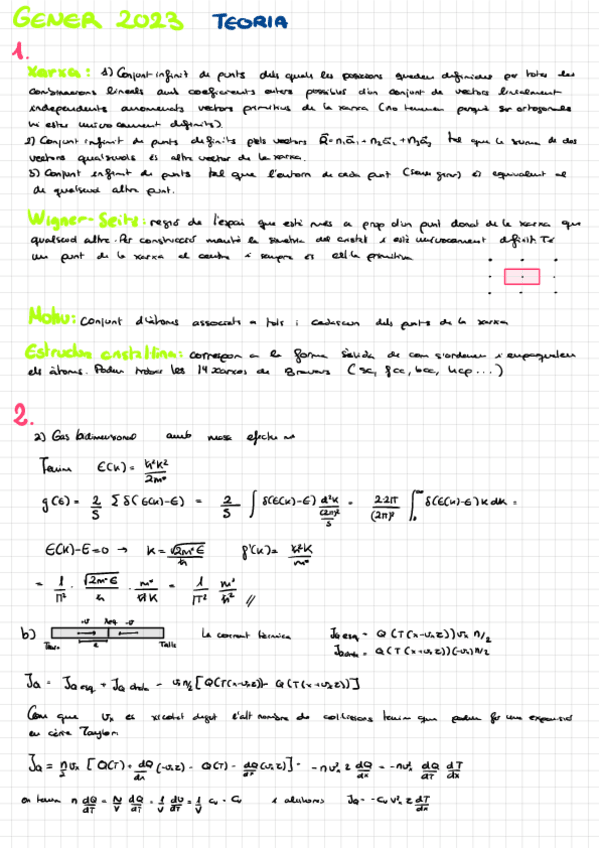 GENER 2023 TEORIA
1.
Xarxa: 1) Conjunt infinit de punts dels quals les posicions queden definides per totes les
combinacions lineals amb coeficients enters possibles d'un conjunt de vectors linealment
independents anomenats vectors primitius de la xarxa (no tenen perquè ser ortogonals
ni estar unívocament definits).
2) Conjunt infinit de punts definits pels vectors R = n₁a₁ + n₂a₂ + n₃a₃ tal que la suma de dos
vectors qualsevols és altre vector de la xarxa.
3) Conjunt infinit de punts tal que l'entorn de cada punt (sense girar) és equivalent al
de qualsevol altre punt.
Wigner-Seitz: regió de l'espai que està més a prop d'un punt donat de la xarxa que
qualsevol altre. Per construcció manté la simetria del cristall i està unívocament definit. Té
un punt de la xarxa al centre i sempre és cel·la primitiva
Motiu: Conjunt d'àtoms associats a tots i cadascun dels punts de la xarxa
Estructura cristal·lina: correspon a la forma sòlida de com s'ordenen i empaqueten
els àtoms. Poden trobar les 14 xarxes de Bravais (sc, fcc, bcc, hcp...)
2.
a) Gas bidimensional amb massa efectiva m*
Tenim E(k) = ħ²k²/2m*
g(E) = 2/S Σ δ(E(k)-E) = 2/S ∫ δ(E(k)-E) d²k/((2π)²/S) = 2·2π/(2π)² ∫₀^∞ δ(E(k)-E) k dk =
E(k)-E=0 → k = √(2m*E)/ħ g'(k) = ħ²k/m*
= 1/π² · √(2m*E)/ħ · m*/ħ²k = 1/π² m*/ħ² //
b) Tesq Tdreta La corrent tèrmica J_Q esq = Q(T(x-vₓτ))vₓ n/2
J_Q dreta = Q(T(x+vₓτ))(-vₓ)n/2
J_Q = J_Q esq + J_Q dreta = vₓn/2 [Q(T(x-vₓτ)) - Q(T(x+vₓτ))]
Com que vₓ és xicotet degut l'alt nombre de col·lisions tenim que podem fer una expansió
en sèrie Taylor:
J_Q = n/2 vₓ [Q(T) + dQ/dx (-vₓτ) - Q(T) - dQ/dx (vₓτ)] = -nvₓ² τ dQ/dx = -nvₓ² dQ/dT dT/dx
on tenim n dQ/dT = N/V dQ/dT = 1/V dU/dT = 1/V cᵥ = Cᵥ i aleshores J_Q = -Cᵥ vₓ² τ dT/dx